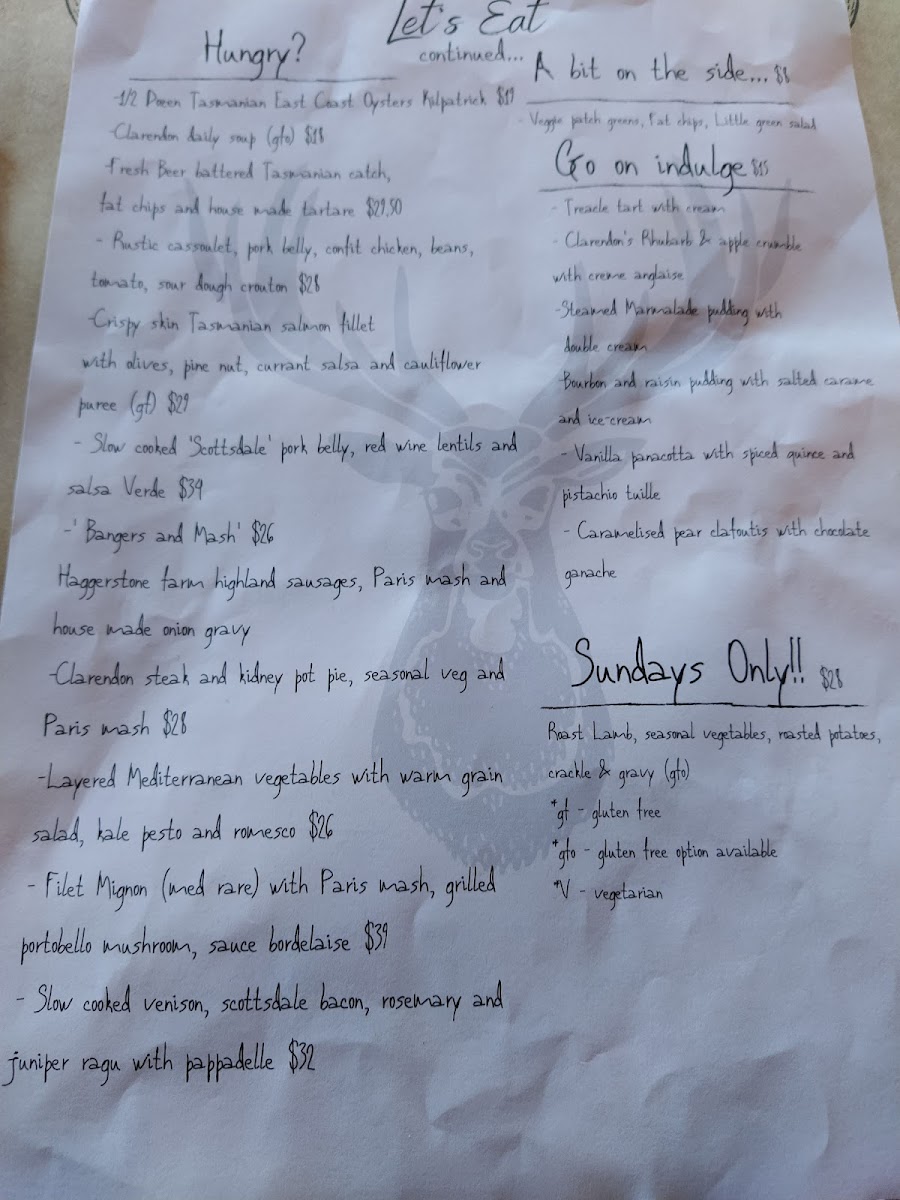 Let's Eat
continued...
Hungry?
-1/2 Dozen Tasmanian East Coast Oysters Kilpatrick $19
-Clarendon daily soup (gfo) $18
-Fresh Beer battered Tasmanian catch,
fat chips and house made tartare $29.50
- Rustic cassoulet, pork belly, confit chicken, beans,
tomato, sour dough crouton $28
-Crispy skin Tasmanian salmon fillet
with olives, pine nut, currant salsa and cauliflower
puree (gf) $29
- Slow cooked 'Scottsdale' pork belly, red wine lentils and
salsa Verde $39
-' Bangers and Mash' $26
Haggerstone farm highland sausages, Paris mash and
house made onion gravy
-Clarendon steak and kidney pot pie, seasonal veg and
Paris mash $28
-Layered Mediterranean vegetables with warm grain
salad, kale pesto and romesco $26
- Filet Mignon (med rare) with Paris mash, grilled
portobello mushroom, sauce bordelaise $39
- Slow cooked venison, scottsdale bacon, rosemary and
juniper ragu with pappadelle $32
A bit on the side... $8
- Veggie patch greens, Fat chips, Little green salad
Go on indulge $15
- Treacle tart with cream
- Clarendon's Rhubarb & apple crumble
with creme anglaise
-Steamed Marmalade pudding with
double cream
Bourbon and raisin pudding with salted carame
and ice-cream
- Vanilla panacotta with spiced quince and
pistachio tuille
- Caramelised pear clafoutis with chocolate
ganache
Sundays Only!! $28
Roast Lamb, seasonal vegetables, roasted potatoes,
crackle & gravy (gfo)
*gf - gluten free
*gfo - gluten free option available
*V - vegetarian